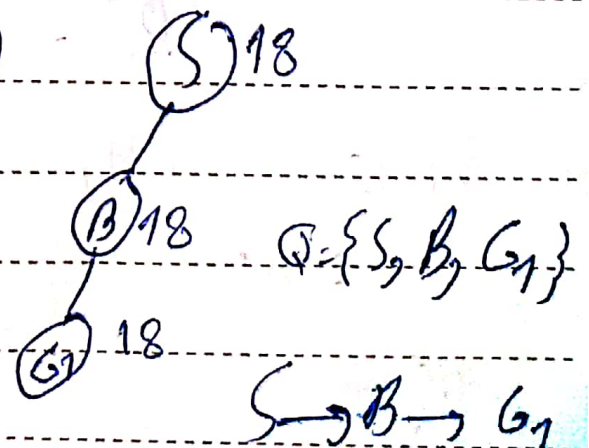 S 18
B 18
Q={S, B, G1}
G1 18
S → B → G1